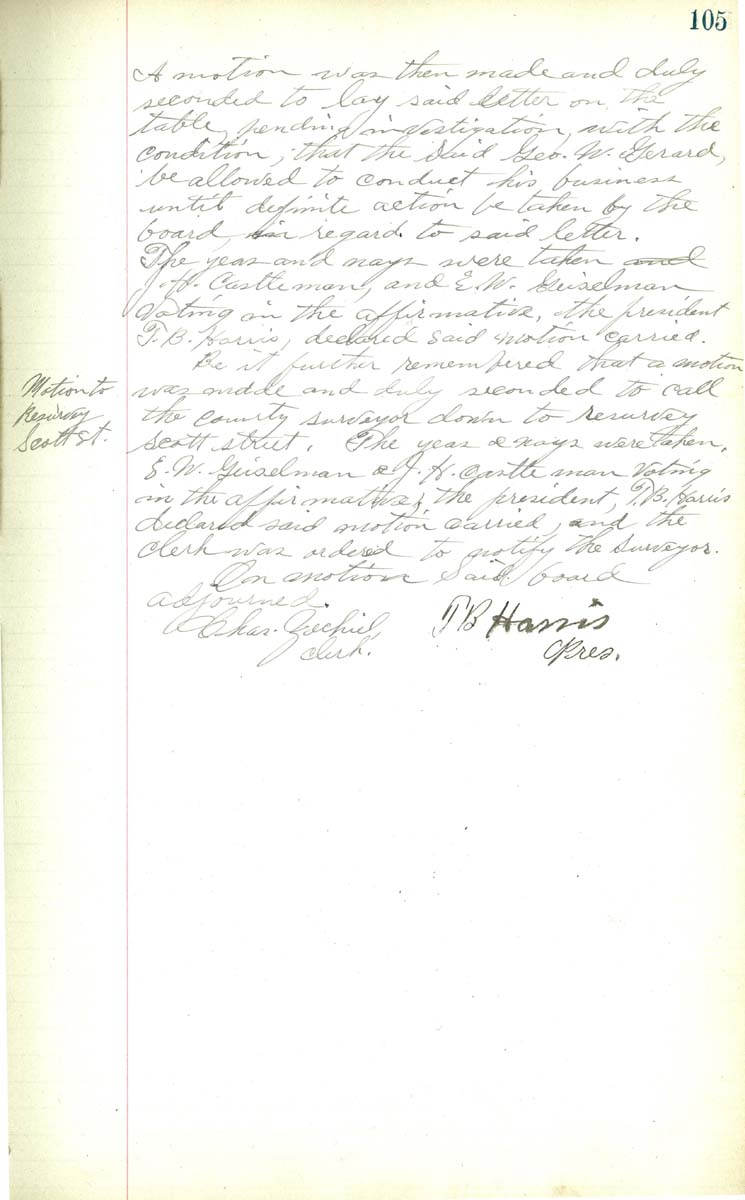 105
A motion was then made and duly
seconded to lay said letter on the
table, pending investigation, with the
condition, that the said Geo. W. Gerard,
be allowed to conduct his business
until definite action be taken by the
board, in regard to said letter.
The yeas and nays were taken and
J. H. Castleman, and E. W. Geiselman
Voting in the affirmative, the president
T. B. Harris, declared said motion carried.
Be it further remembered that a motion
Motion to
Resurvey
Scott St.
was made and duly seconded to call
the county surveyor down to resurvey
Scott street. The yeas & nays were taken,
E. W. Geiselman & J. H. Castleman Voting
in the affirmative, the president, T. B. Harris
declared said motion carried, and the
clerk was ordered to notify the surveyor.
On motion Said board
adjourned.
Chas. Zechiel, T B Harris
Clerk. Pres.